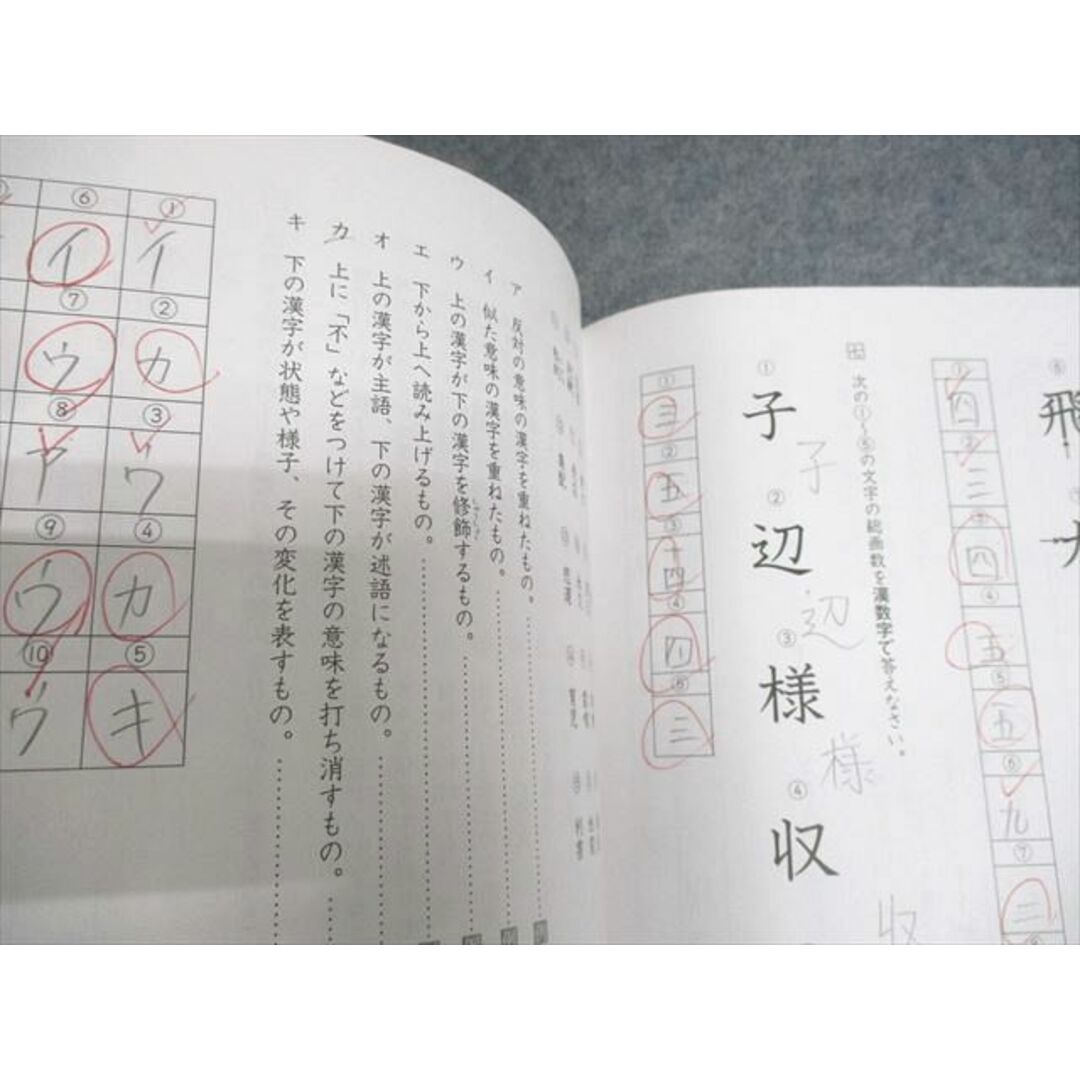 飛
①
四
②
三
四
④
五
⑤
五
⑥
九
⑦
三
七 次の①〜⑤の文字の総画数を漢数字で答えなさい。
① 子
② 辺
③ 様
④ 収
子
辺
様
収
①
三
②
五
③
十四
④
四
⑤
三
ア 反対の意味の漢字を重ねたもの。
イ 似た意味の漢字を重ねたもの。
ウ 上の漢字が下の漢字を修飾するもの。
エ 下から上へ読み上げるもの。
オ 上の漢字が主語、下の漢字が述語になるもの。
カ 上に「不」などをつけて下の漢字の意味を打ち消すもの。
キ 下の漢字が状態や様子、その変化を表すもの。
①
イ
②
カ
③
ウ
④
カ
⑤
キ
⑥
イ
⑦
ウ
⑧
ア
⑨
ウ
⑩
ウ